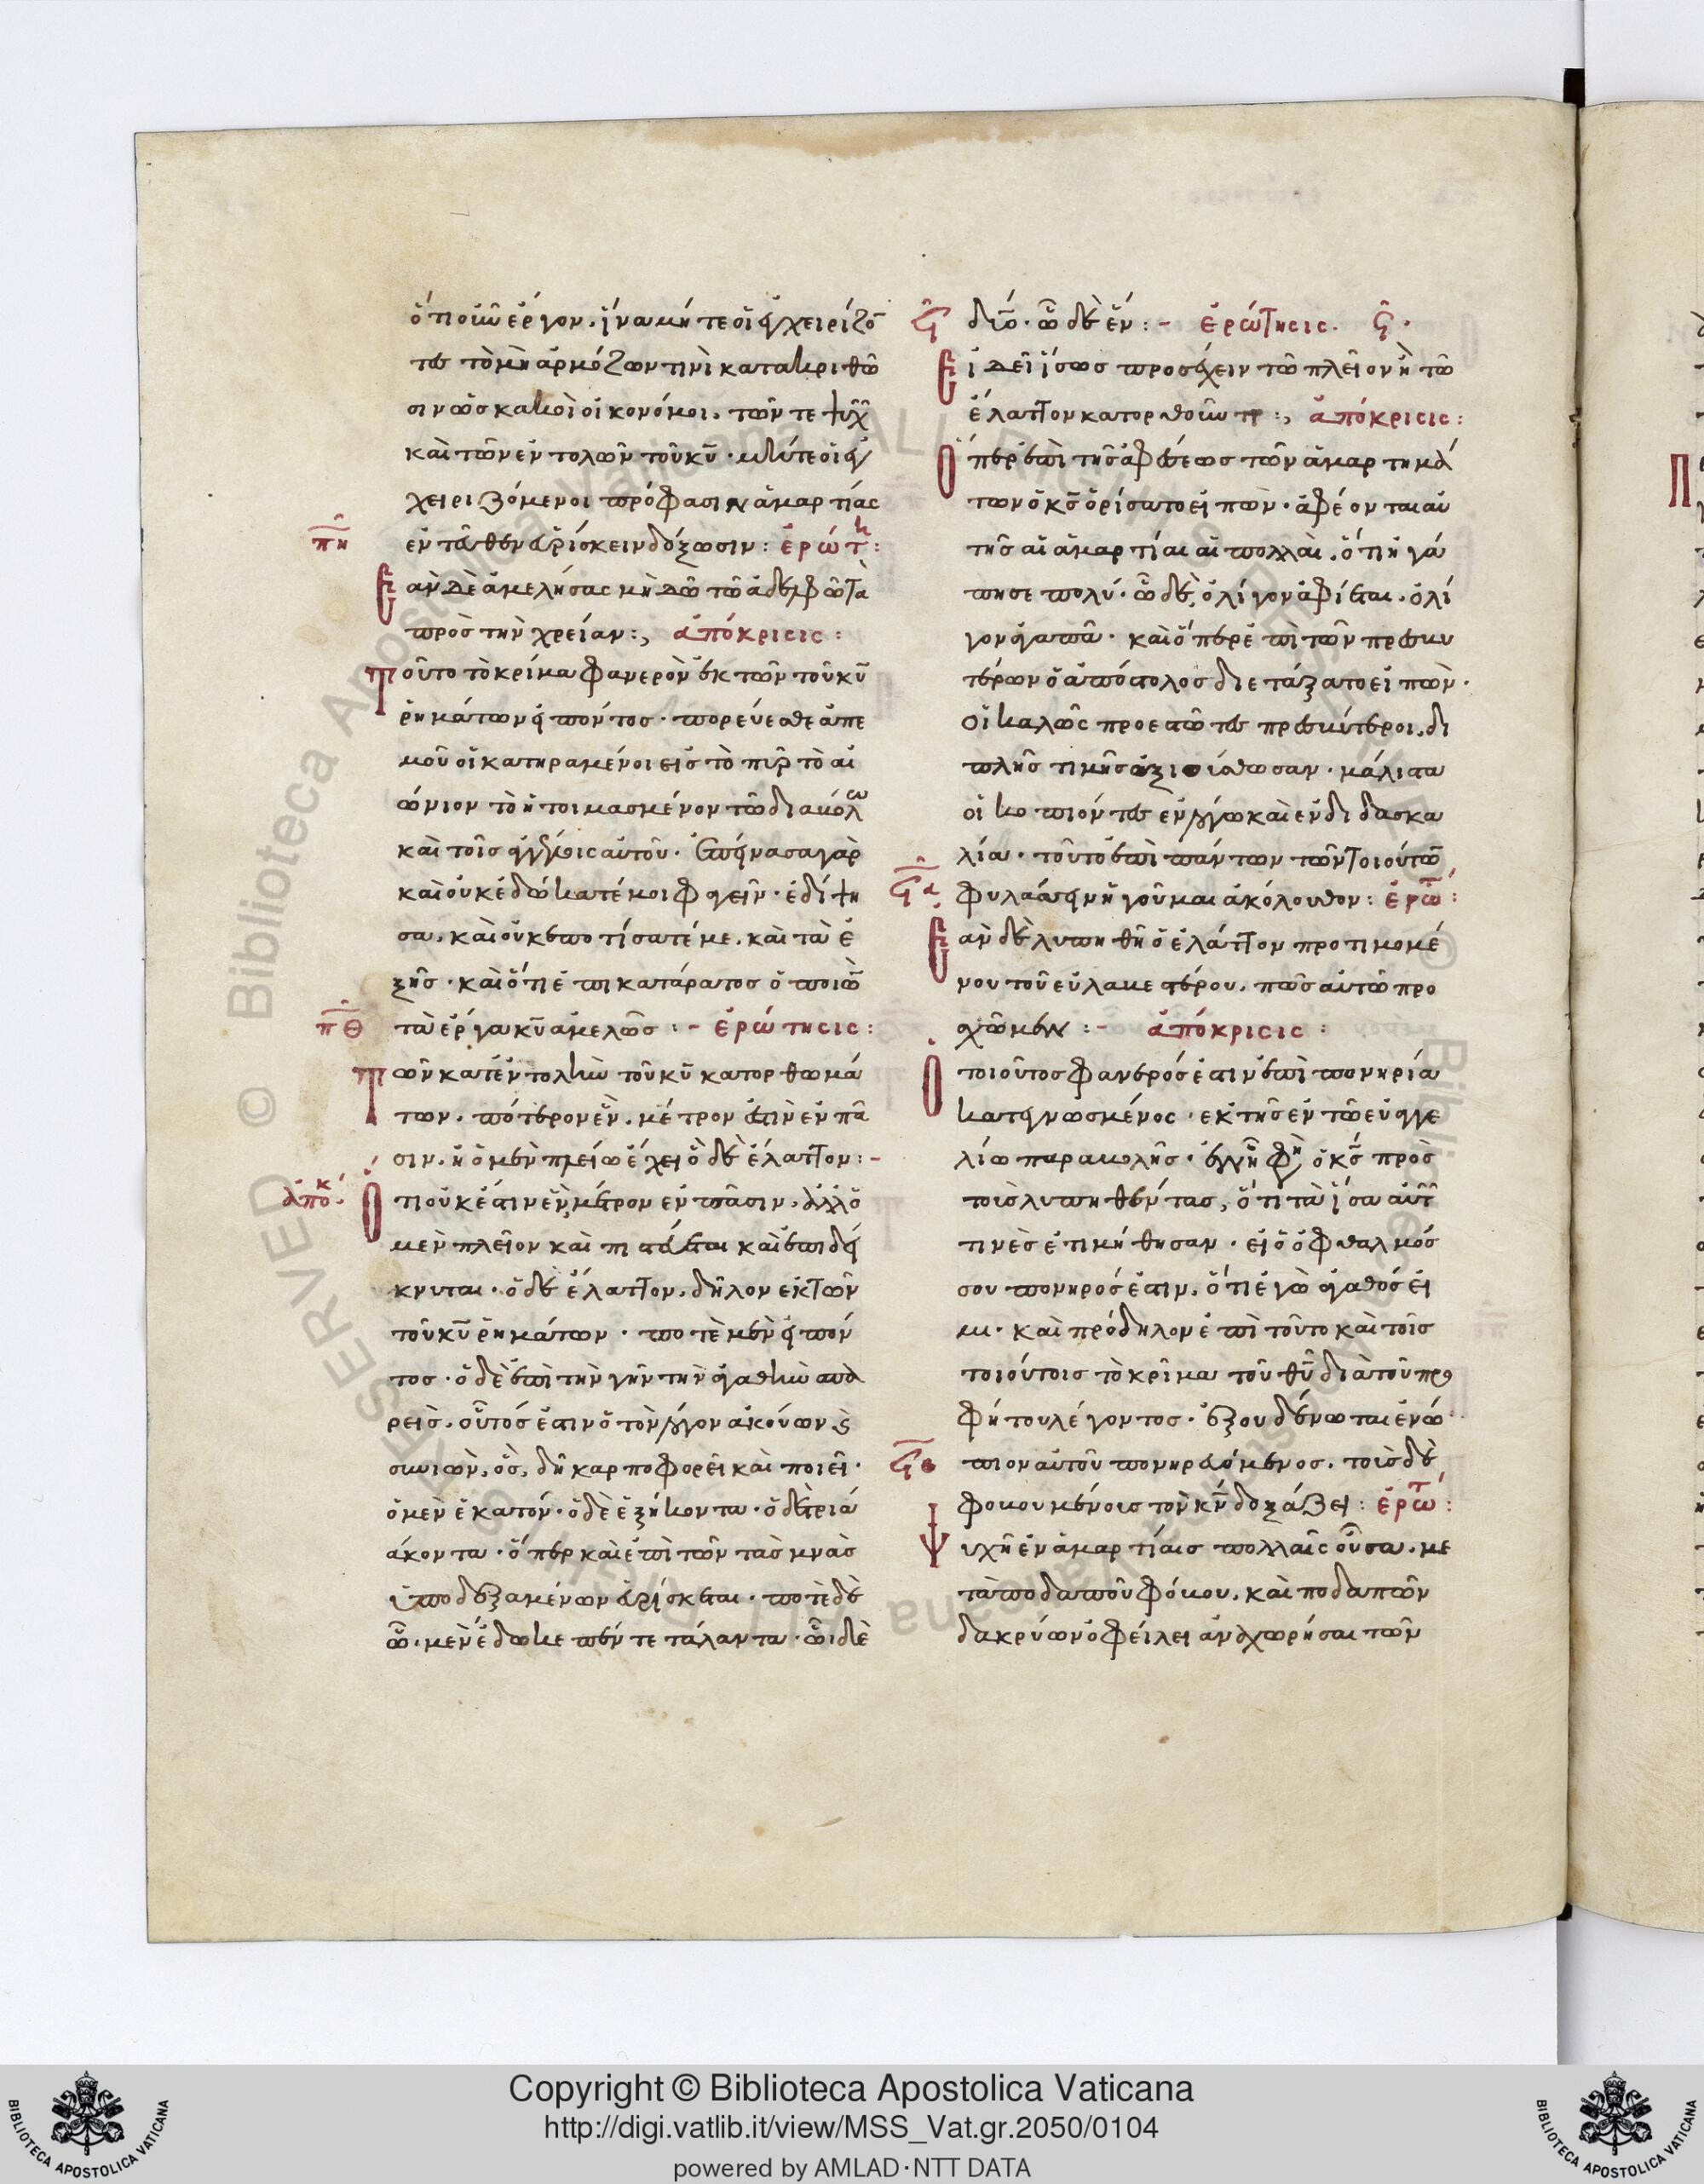 ὅτι οἱῶ ἔργον. ἵνα μήτε οἱ ἐγχειρίζο
τες τὸ μὴ ἁρμόζων τινὶ κατακριθῶ
σιν ὡς κακοὶ οἰκονόμοι. τῶν τε ψυχ
καὶ τῶν ἐντολῶν τοῦ κυ · μήτε οἱ ἐγ
χειριζόμενοι πρόφασιν ἁμαρτίας
πη
ἐντεῦθεν εὑρίσκειν δόξωσιν : ἐρώτ :
Εὰν δὲ ἀμελήσας μὴ δῶ τῶ ἀδελφῶ τὰ
πρὸς τὴν χρείαν :, ἀπόκρισις :
Τοῦτο τὸ κρίμα φανερὸν ἐκ τῶν τοῦ κυ
ῥημάτων εἰπόντος · πορεύεσθε ἀπε
μοῦ οἱ κατηραμένοι εἰς τὸ πῦρ τὸ αἰ
ώνιον τὸ ἡτοιμασμένον τῶ διαβόλω
καὶ τοῖς ἀγγέλοις αὐτοῦ · ἐπείνασα γὰρ
καὶ οὐκ ἐδώκατέ μοι φαγεῖν · ἐδίψη
σα. καὶ οὐκ ἐποτίσατέ με. καὶ τὰ ἑ
ξῆς · καὶ ὅτι ἐπικατάρατος ὁ ποιῶ
πθ
τὰ ἔργα κυ ἀμελῶς :- ἐρώτησις :
Τῶν κατ' ἐντολὴν τοῦ κυ κατορθωμά
των. πότερον ἓν. μέτρον ἐστὶν ἐν πᾶ
σιν. ἢ ὁ μὲν πλείω ἔχει ὁ δὲ ἔλαττον :-
ἀποκ
Οτι οὐκ ἔστιν ἓν μέτρον ἐν πᾶσιν. ἀλλ' ὁ
μὲν πλεῖον καὶ πιστεύεται καὶ ἐπιδεί
κνυται · ὁ δὲ ἔλαττον. δῆλον ἐκ τῶν
τοῦ κυ ῥημάτων · ποτὲ μὲν εἰπόν
τος · ὁ δὲ ἐπὶ τὴν γῆν τὴν ἀγαθὴν σπα
ρεὶς. οὗτός ἐστιν ὁ τὸν λόγον ἀκούων κ
συνιών. ὃς. δὴ καρποφορεῖ καὶ ποιεῖ ·
ὁ μὲν ἑκατόν · ὁ δὲ ἑξήκοντα · ὁ δὲ τριά
άκοντα · ὅπερ καὶ ἐπὶ τῶν τὰς μνᾶς
ὑποδεξαμένων εὑρίσκεται · ποτὲ δὲ
ᾧ · μὲν ἔδωκε πέντε τάλαντα · ᾧ δὲ
ϟ
δύο · ᾧ δὲ ἕν :- ἐρώτησις. ϟ ·
Εἰ δεῖ ἴσως προσέχειν τῶ πλεῖον ἢ τῶ
ἔλαττον κατορθοῦντι :, ἀπόκρισις :
Ὅπερ ἐπὶ τῆς ἀφέσεως τῶν ἁμαρτημά
των ὁ κς ὁρίσατο εἰπών · ἀφέονται αὐ
τῆς αἱ ἁμαρτίαι αἱ πολλαὶ. ὅτι ἠγά
πησε πολύ · ᾧ δὲ, ὀλίγον ἀφίεται. ὀλί
γον ἀγαπᾶ · καὶ ὅπερ ἐπὶ τῶν πρεσβυ
τέρων ὁ ἀπόστολος διετάξατο εἰπὼν ·
Οἱ καλῶς προεστῶτες πρεσβύτεροι. δι
πλῆς τιμῆς ἀξιούσθωσαν · μάλιστα
οἱ κοπιόντες ἐν λόγω καὶ ἐν διδασκα
λία · τοῦτο ἐπὶ πάντων τῶν τοιούτω
ϟα
φυλάσσειν ἡγοῦμαι ἀκόλουθον : ἐρωτ :
Εὰν δὲ λυπηθῆ ὁ ἐλάττον προτιμομέ
νου τοῦ εὐλαβεστέρου. πῶς αὐτῶ προ
σχῶμεν :- ἀπόκρισις :
Ὁ τοιοῦτος φανερός ἐστιν ἐπὶ πονηρία
κατεγνωσμένος · ἐκ τῆς ἐν τῶ εὐαγγε
λίω παραβολῆς · ἐν ᾗ φη ὁ κς πρὸς
τοὺς λυπηθέντας, ὅτι τὰ ἴσα αὐτ
τινὲς ἐτιμήθησαν · εἰ ὁ ὀφθαλμός
σου πονηρός ἐστιν. ὅτι ἐγὼ ἀγαθός εἰ
μι · καὶ πρόδηλον ἐπὶ τοῦτο καὶ τοῖς
τοιούτοις τὸ κρῖμα τοῦ θυ διὰ τοῦ προ
φήτου λέγοντος · ἐξουδένωται ἐνώ
ϟβ
πιον αὐτοῦ πονηρευόμενος. τοὺς δὲ
φοβουμένοις τὸν κν δοξάζει : ἐρωτ :
Ψυχὴ ἐν ἁμαρτίαις πολλαῖς οὖσα. με
τὰ ποδαποῦ φόβου. καὶ ποδαπῶν
δακρύων ὀφείλει ἀναχωρῆσαι τῶν
Copyright © Biblioteca Apostolica Vaticana
http://digi.vatlib.it/view/MSS_Vat.gr.2050/0104
powered by AMLAD·NTT DATA
BIBLIOTECA APOSTOLICA VATICANA
BIBLIOTECA APOSTOLICA VATICANA